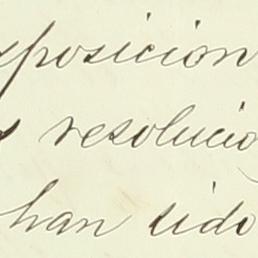 xposicion
s resolucio
han sido